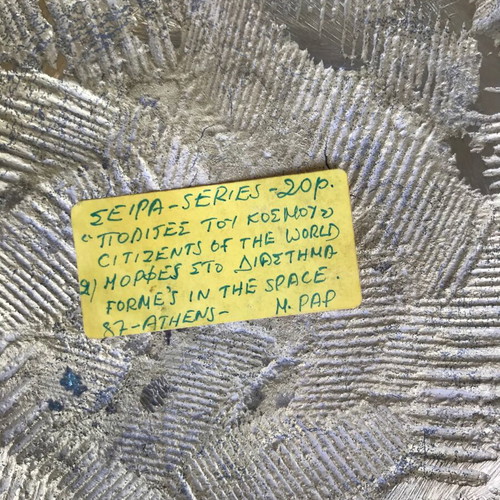 ΣΕΙΡΑ-SERIES-20p.
"ΠΟΛΙΤΕΣ ΤΟΥ ΚΟΣΜΟΥ»
CITIZENTS OF THE WORLD
2) ΜΟΡΦΕΣ ΣΤΟ ΔΙΑΣΤΗΜΑ
FORME'S IN THE SPACE.
87-ATHENS- M. PAP